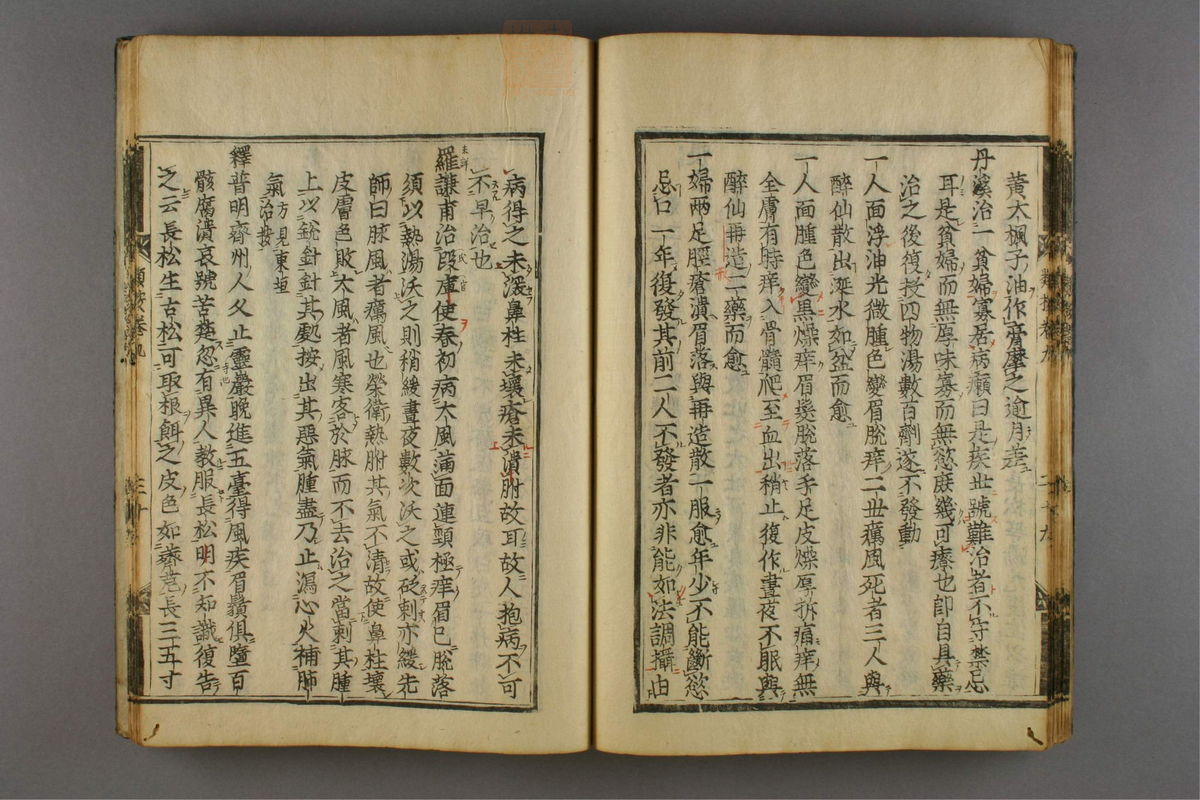 黃太楓子油作膏摩之逾月差
丹溪治一貧婦寡居病癩曰是疾世號難治者不守禁忌
耳是貧婦而無厚味寡而無慾庶幾可療也卽自具藥
治之後復投四物湯數百劑遂不發動
一人面浮油光微腫色變眉脫痒二世癘風死者三人與
醉仙散出涎水如盆而愈
一人面腫色變黑燥痒眉髮脫落手足皮燥厚拆痛痒無
全膚有時痒入骨髓爬至血出稍止復作晝夜不眠與
醉仙再造二藥而愈
一婦兩足脛瘡潰眉落與再造散一服愈年少不能斷慾
忌口一年復發其前二人不發者亦非能如法調攝由
病得之未深鼻柱未壞瘡未潰胕故耳故人抱病不可
不早治也
羅謙甫治段庫使春初病大風滿面連頸極痒眉已脫落
須以熱湯沃之則稍緩晝夜數次沃之或砭刺亦緩先
師曰脉風者癘風也榮衛熱胕其氣不清故使鼻柱壞
皮膚色敗大風者風寒客於脉而不去治之當刺其腫
上以銳針針其處按出其惡氣腫盡乃止瀉心火補肺
氣方見東垣治驗
釋普明齊州人久止靈巖晚進五臺得風疾眉鬚俱墮百
骸腐潰哀號苦楚忽有異人教服長松明不知識復告
之云長松生古松下可取根餌之皮色如薺苨長三五寸
類按卷九
二十九
類按卷九
三十